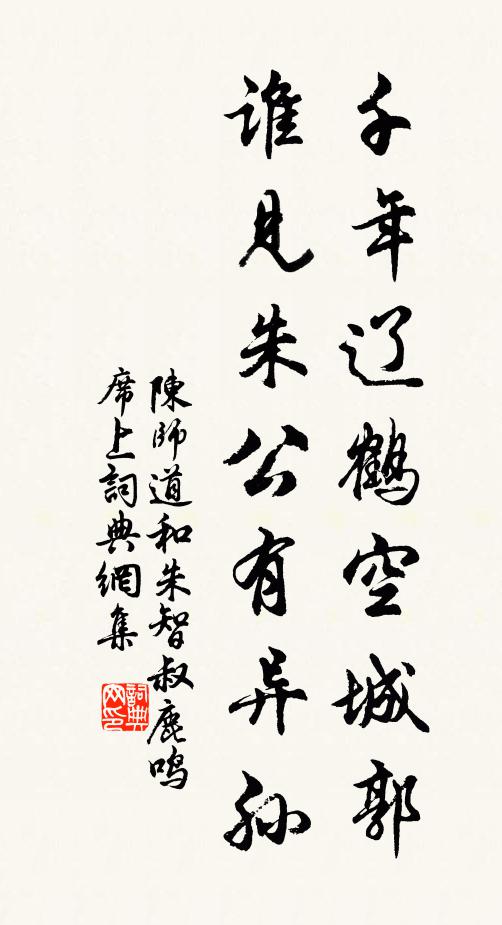 千年辽鹤空城郭
谁见朱公有异孙
陳師道和朱智叔鹿鸣
席上詞典網集
詞典网印